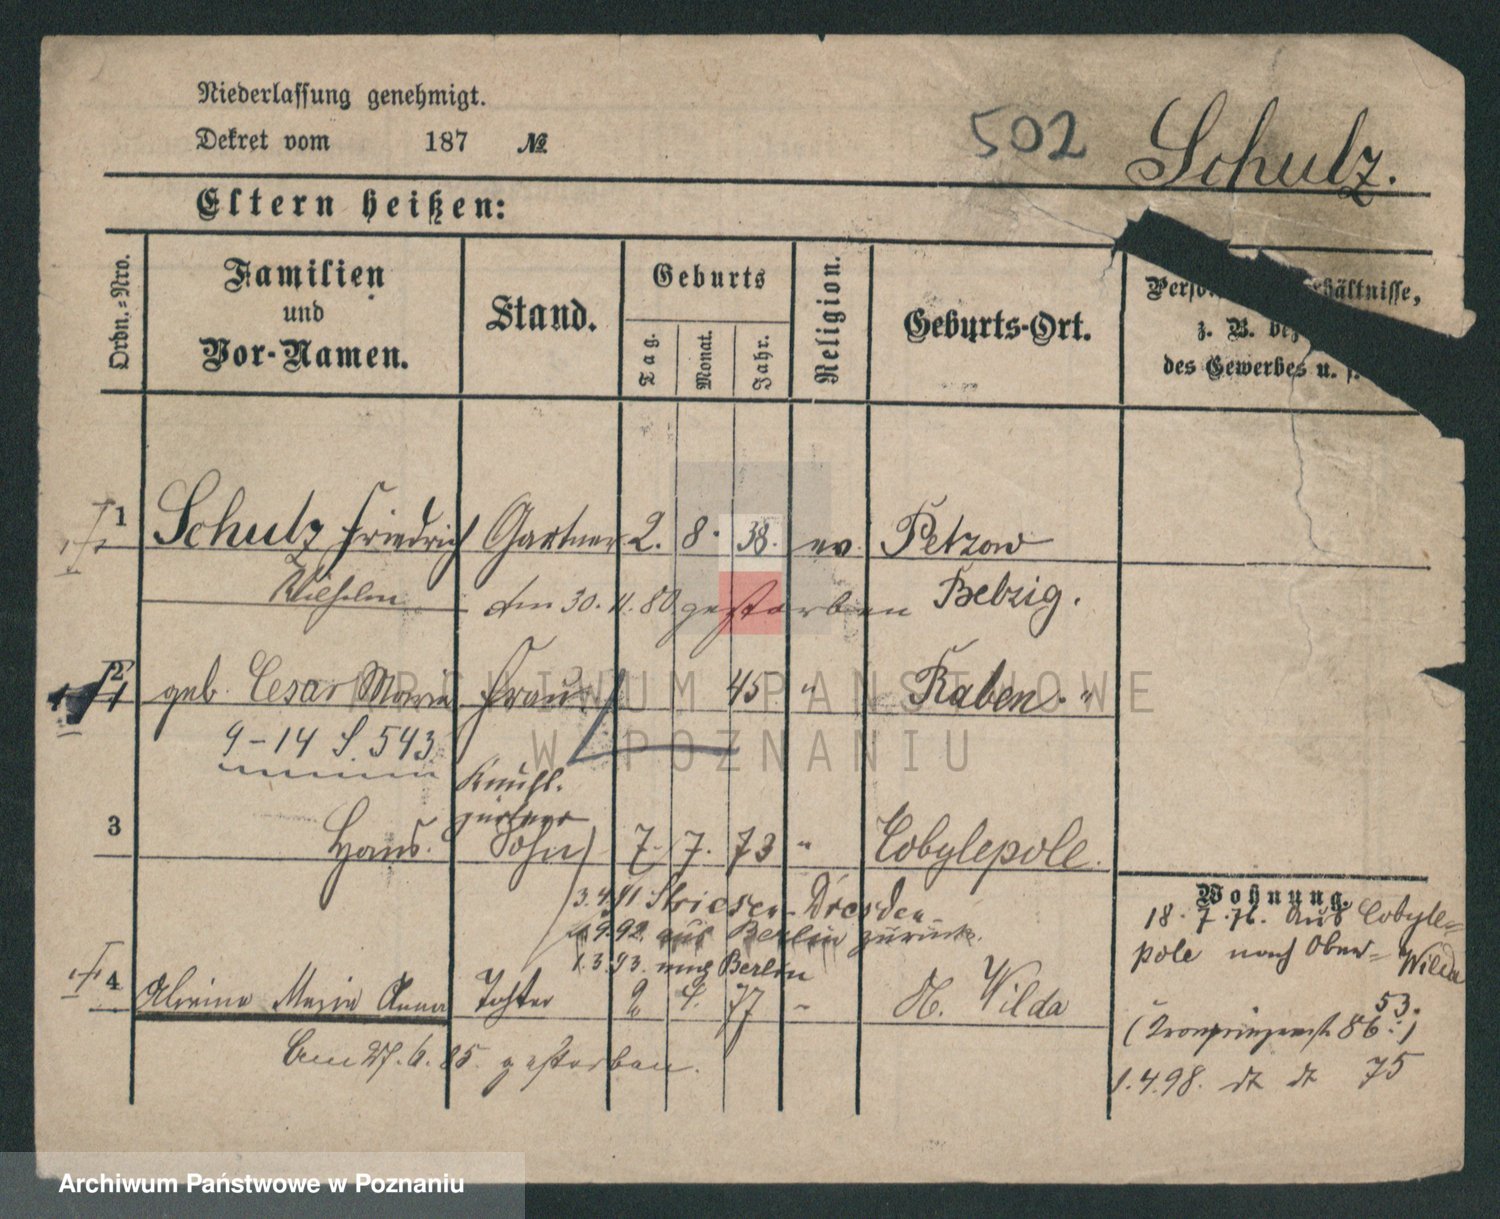 Niederlassung genehmigt.
Dekret vom 187 №
502
Schulz.
Eltern heißen:
Ordn.-Nro.
Familien
und
Vor-Namen.
Stand.
Geburts
Tag.
Monat.
Jahr.
Religion.
Geburts-Ort.
z. B.
des Gewerbes u.
1 Schulz Friedrich Gartner 2. 8. 38. ev. Petzow
Wilhelm am 30. 11. 80 gestorben Belzig.
2 geb. Cesar Marie Frau 45 " Raben "
9-14 S. 543.
3 Hans. Sohn 7. 7. 73 " Cobylepole.
Striesen-Dresden
9.92 aus Berlin zurück.
1.3.93. nach Berlin
4 Marie Anna Tochter 2 4. 77 " N. Wilda
Am 27. 6. 85. gestorben.
Wohnung.
18. 7. 76. Aus Cobyle-
pole nach Ober-Wilda
53.
(Kronprinzenst. 86.)
1.4.98. dt dt 75
ARCHIWUM PAŃSTWOWE
W POZNANIU
Archiwum Państwowe w Poznaniu